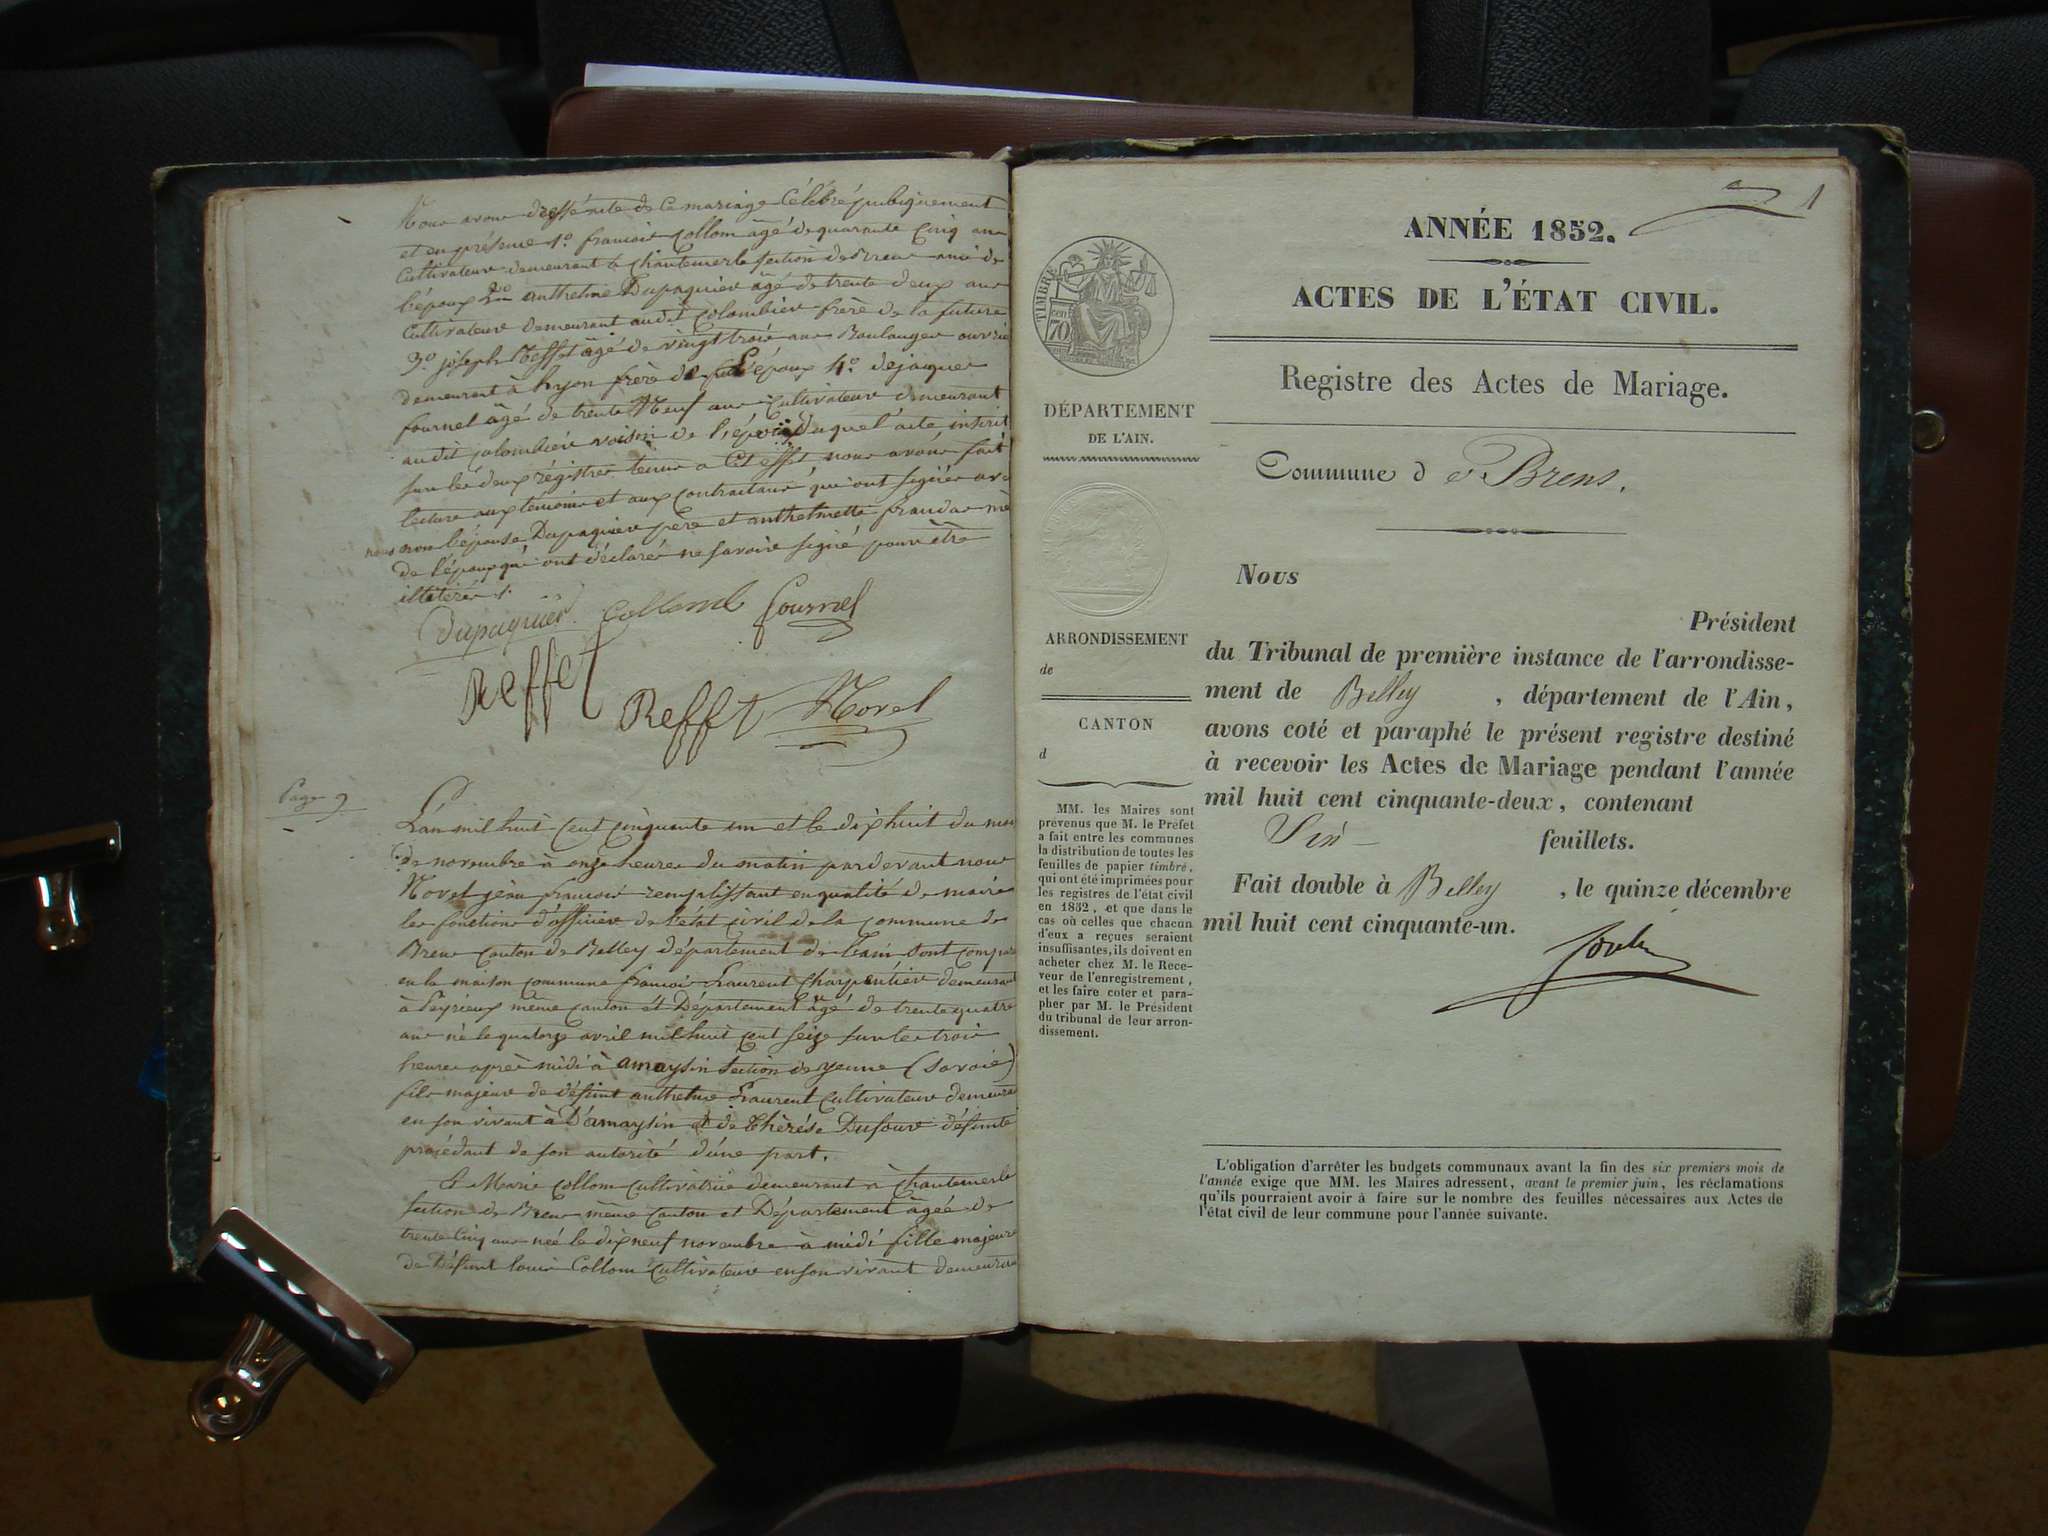 Nous avons dressé acte de ce mariage célébré publiquement
et en présence 1.o francois Collom âgé de quarante cinq ans
Cultivateur demeurant à Chantemerle section de Brens ami de
l'époux 2o anthelme Dupaquier âgé de trente deux ans
Cultivateur demeurant audit Colombier frère de la future
3.o joseph Reffet âgé de vingt trois ans Boulanger ouvrie
demeurant à Lyon frère de l'époux 4.o dejaques
fournel âgé de trente Neuf ans Cultivateur demeurant
audit Colombier voisin de duquel acte inscrit
sur les deux régistres tenus a cet effet nous avons fait
lecture aux témoins et aux Contractans qui ont signés avec
nous non l'épouse Dupaquier père et anthelmette mè
de l'époux qui ont déclarés ne savoir signé pour être
illetérés
Dupaquier Collomb fournel
Reffet
Reffet Morel
Page 9
L'an mil huit cent cinquante un et le dixhuit du moi
de novembre à onze heures du matin pardevant nous
Morel jean francois remplissant en qualité de maire
les fonctions d'officier de l'état civil de la commune de
Brens canton de Belley département de l'ain sont compa
en la maison commune francois Laurent Charpentier demeurant
à Peyrieux même canton et Département âgé de trente quatre
ans né le quatorze avril mil huit cent seize sur les trois
heures après midi à amaysin section de yenne (Savoie)
fils majeur de défunt anthelme Laurent Cultivateur demeura
en son vivant à D'amaysin et de Thérèse Dufour défunte
procédant de son autorité d'une part.
Et Marie Collom Cultivatrice demeurant à Chantemerle
section de Brens même Canton et Département âgée de
trente Cinq ans née le dixneuf novembre à midi fille majeure
de Défunt louis Collom Cultivateur en son vivant demeura
1
ANNÉE 1852.
ACTES DE L'ÉTAT CIVIL.
Registre des Actes de Mariage.
TIMBRE
70 cen
DÉPARTEMENT
DE L'AIN.
Commune de Brens.
Nous
Président
du Tribunal de première instance de l'arrondisse-
ment de Belley, département de l'Ain,
avons coté et paraphé le présent registre destiné
à recevoir les Actes de Mariage pendant l'année
mil huit cent cinquante-deux, contenant
Six feuillets.
Fait double à Belley, le quinze décembre
mil huit cent cinquante-un.
ARRONDISSEMENT
de
CANTON
d
MM. les Maires sont
prévenus que M. le Préfet
a fait entre les communes
la distribution de toutes les
feuilles de papier timbré,
qui ont été imprimées pour
les registres de l'état civil
en 1852, et que dans le
cas où celles que chacun
d'eux a reçues seraient
insuffisantes, ils doivent en
acheter chez M. le Rece-
veur de l'enregistrement,
et les faire coter et para-
pher par M. le Président
du tribunal de leur arron-
dissement.
L'obligation d'arrêter les budgets communaux avant la fin des six premiers mois de
l'année exige que MM. les Maires adressent, avant le premier juin, les réclamations
qu'ils pourraient avoir à faire sur le nombre des feuilles nécessaires aux Actes de
l'état civil de leur commune pour l'année suivante.